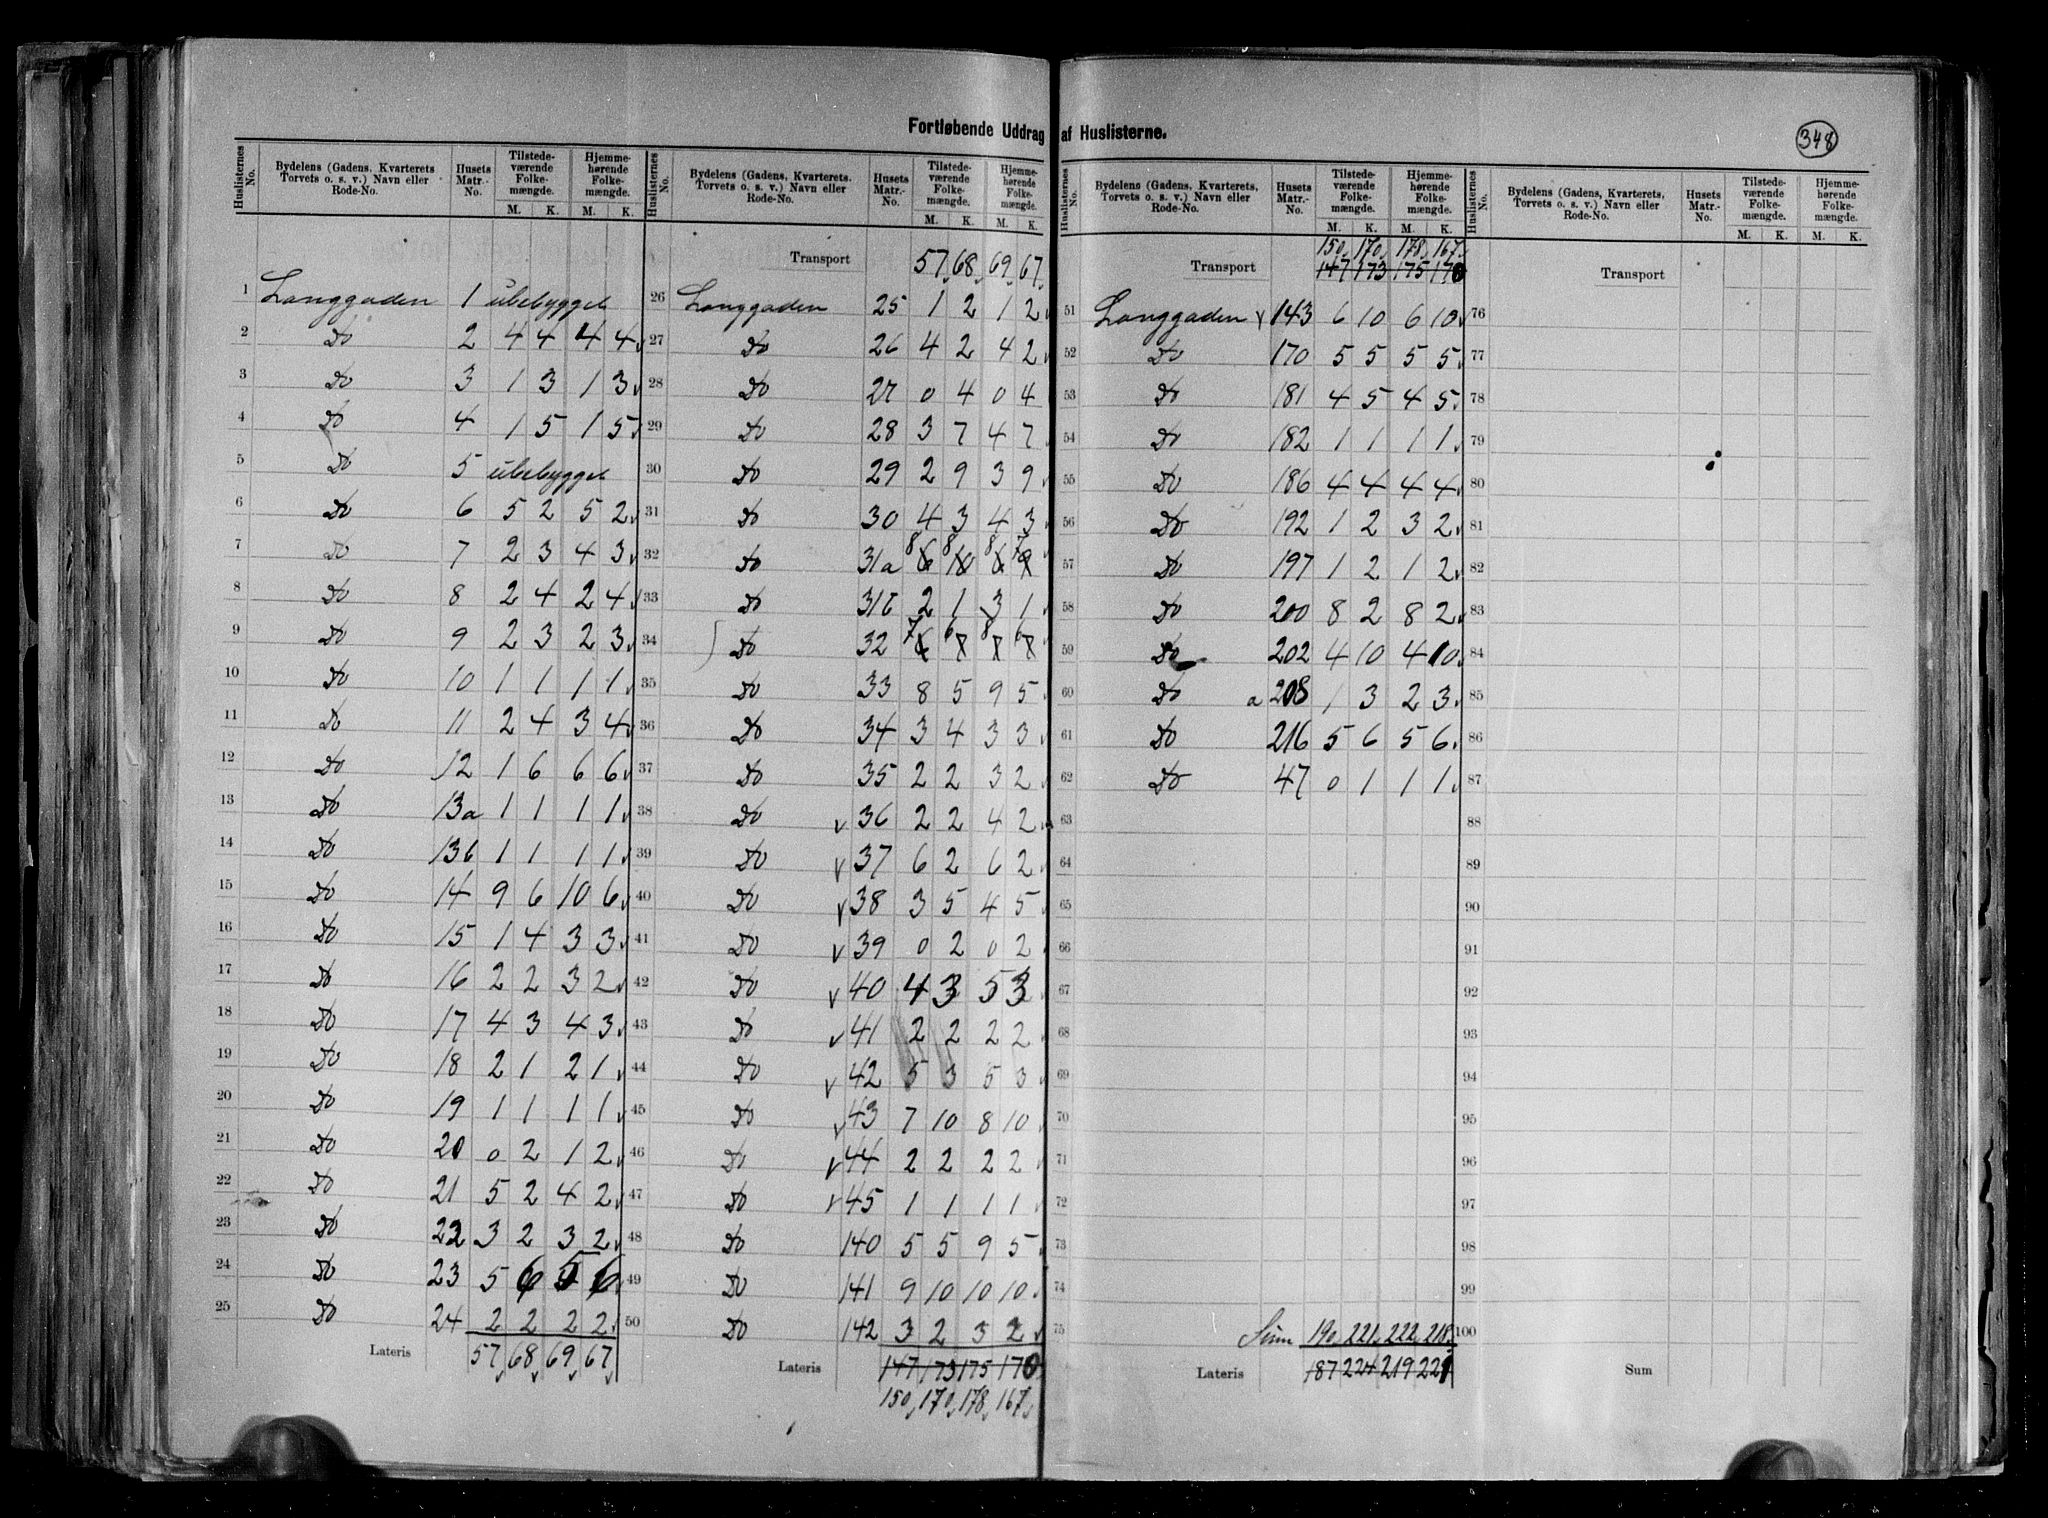 Fortløbende Uddrag af Huslisterne.
348
Huslisternes No. Bydelens (Gadens, Kvarterets Torvets o. s. v.) Navn eller Rode-No. Husets Matr.-No. Tilstedeværende Folkemængde. M. K. Hjemmehørende Folkemængde. M. K.
1 Langgaden 1 ubebygget
2 Do 2 4 4 4 4
3 Do 3 1 3 1 3
4 Do 4 1 5 1 5
5 Do 5 ubebygget
6 Do 6 5 2 5 2
7 Do 7 2 3 4 3
8 Do 8 2 4 2 4
9 Do 9 2 3 2 3
10 Do 10 1 1 1 1
11 Do 11 2 4 3 4
12 Do 12 1 6 6 6
13 Do 13a 1 1 1 1
14 Do 13b 1 1 1 1
15 Do 14 9 6 10 6
16 Do 15 1 4 3 3
17 Do 16 2 2 3 2
18 Do 17 4 3 4 3
19 Do 18 2 1 2 1
20 Do 19 1 1 1 1
21 Do 20 0 2 1 2
22 Do 21 5 2 4 2
23 Do 22 3 2 3 2
24 Do 23 5 6 5 6
25 Do 24 2 2 2 2
Lateris 57 68 69 67
Huslisternes No. Bydelens (Gadens, Kvarterets. Torvets o. s. v.) Navn eller Rode-No. Husets Matr.-No. Tilstedeværende Folkemængde. M. K. Hjemmehørende Folkemængde. M. K.
Transport 57 68 69 67
26 Langgaden 25 1 2 1 2
27 Do 26 4 2 4 2
28 Do 27 0 4 0 4
29 Do 28 3 7 4 7
30 Do 29 2 9 3 9
31 Do 30 4 3 4 3
32 Do 31a 8 8 8 7
33 Do 31b 2 1 3 1
34 Do 32 7 6 8 6
35 Do 33 8 5 9 5
36 Do 34 3 4 3 3
37 Do 35 2 2 3 2
38 Do 36 2 2 4 2
39 Do 37 6 2 6 2
40 Do 38 3 5 4 5
41 Do 39 0 2 0 2
42 Do 40 4 3 5 3
43 Do 41 2 2 2 2
44 Do 42 5 3 5 3
45 Do 43 7 10 8 10
46 Do 44 2 2 2 2
47 Do 45 1 1 1 1
48 Do 140 5 5 9 5
49 Do 141 9 10 10 10
50 Do 142 3 2 3 2
Lateris 147 173 175 170
150 170 178 167
Huslisternes No. Bydelens (Gadens, Kvarterets, Torvets o. s. v.) Navn eller Rode-No. Husets Matr.-No. Tilstedeværende Folkemængde. M. K. Hjemmehørende Folkemængde. M. K.
150 170 178 167
Transport 147 173 175 170
51 Langgaden 143 6 10 6 10
52 Do 170 5 5 5 5
53 Do 181 4 5 4 5
54 Do 182 1 1 1 1
55 Do 186 4 4 4 4
56 Do 192 1 2 3 2
57 Do 197 1 2 1 2
58 Do 200 8 2 8 2
59 Do 202 4 10 4 10
60 Do a 208 1 3 2 3
61 Do 216 5 6 5 6
62 Do 47 0 1 1 1
63
64
65
66
67
68
69
70
71
72
73
74
75
Sum 190 221 222 218
Lateris 187 224 219 221
Huslisternes No. Bydelens (Gadens, Kvarterets, Torvets o. s. v.) Navn eller Rode-No. Husets Matr.-No. Tilstedeværende Folkemængde. M. K. Hjemmehørende Folkemængde. M. K.
Transport
76
77
78
79
80
81
82
83
84
85
86
87
88
89
90
91
92
93
94
95
96
97
98
99
100
Sum